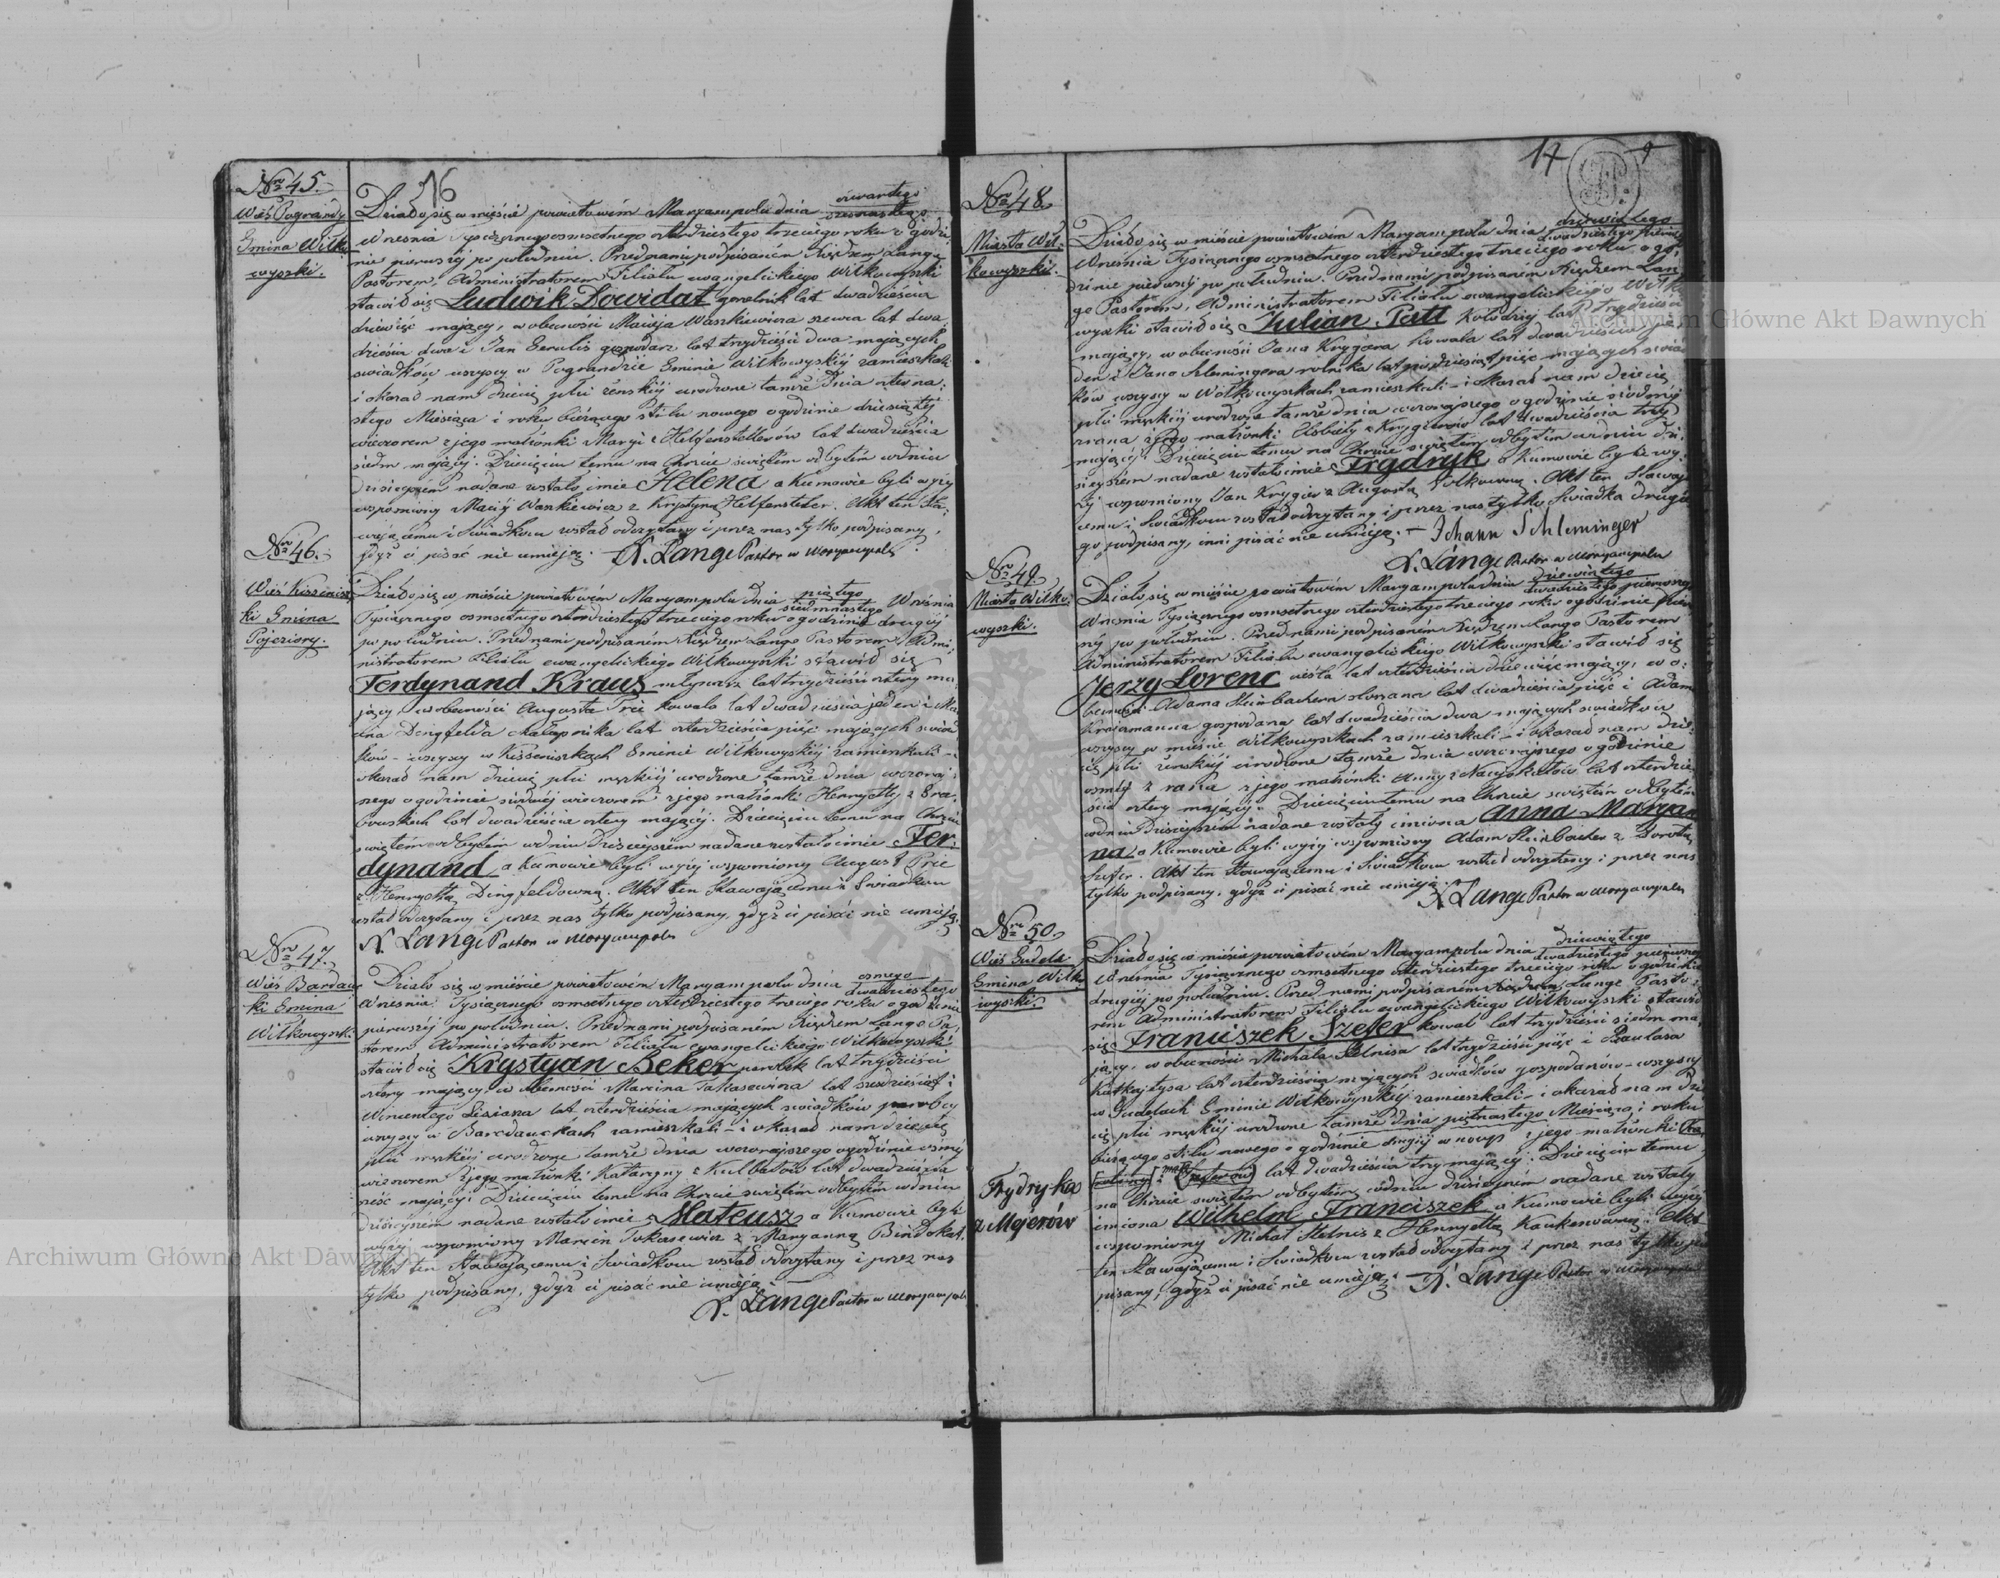 16
Nro 45.
Wieś Pograndy
Gmina Wilko-
wyszki.
Działo się w mieście powiatowém Maryampolu dnia czwartego / szesnastego
Września Tysiącznego osmsetnego czterdziestego trzeciego roku o godzi-
nie pierwszej po południu. Przed nami podpisaném Xiędzem Lange
Pastorem, Administratorem Filiału ewangelickiego Wilkowyszki
stawił się Ludwik Dowidat gorzelnik lat dwadzieścia
dziewięć mający, w obecności Macieja Waszkiewicza szewca lat dwa-
dzieścia dwa i Jan Gerulis gospodarz lat trzydzieści dwa mających
świadków wszyscy w Pograndzie Gminie Wilkowyskiéj zamieszkali
i okazał nam dziecię płci żenskiéj urodzone tamże dnia czterna-
stego Miesiąca i roku bieżącego stilu nowego o godzinie dziesiątéj
wieczorem z jego małżonki Maryi z Helfenstellerów lat dwadzieścia
siedm mającéj. Dziecięciu temu na Chrzcie świętém odbytém w dniu
dzisiejszém nadane zostało imie Helena a kumowie byli wyżéj
wspomniony Maciéj Waszkiewicz z Krystyną Helfensteler. Akt ten sta-
wającemu i Swiadkom został odczytany i przez nas tylko podpisany,
gdyż ci pisać nie umieją. X. Lange Pastor w Maryampolu
Nro 46.
Wieś Kissenisz-
ki Gmina
Pojeziory.
Działo się w mieście powiatowém Maryampolu dnia piątego / siedmnastego Września
Tysiącznego osmsetnego czterdziestego trzeciego roku o godzinie drugiéj
po południu. Przed nami podpisaném Xiędzem Lange Pastorem, Admi-
nistratorem Filiału ewangelickiego Wilkowyszki stawił się
Ferdynand Kraus młynarz lat trzydzieści cztery ma-
jący, w obecności Augusta Frei kowala lat dwadzieścia jeden i
Dingfelda chałupnika lat czterdzieście pięć mających świad-
ków - wszyscy w Kisseniszkach Gminie Wilkowyskiéj zamieszkali - i
okazał nam dziecię płci męskiéj urodzone tamże dnia wczoraj-
szego o godzinie siódméj wieczorem z jego małżonki Henryetty z
lat dwadzieścia cztery mającéj. Dziecięciu temu na Chrzcie
świętém odbytém w dniu dzisiejszém nadane zostało imie Fer-
dynand a kumowie byli wyżéj wspomniony August Frei
z Henryettą Dingfeldowną. Akt ten Stawającemu i Swiadkom
został odczytany i przez nas tylko podpisany, gdyż ci pisać nie umieją.
X. Lange Pastor w Maryampolu
Nro 47.
Wieś Bardauc-
ki Gmina
Wilkowyszki.
Działo się w mieście powiatowém Maryampolu dnia osmego / dwudziestego
Września Tysiącznego osmsetnego czterdziestego trzeciego roku o godzinie
pierwszéj po południu. Przed nami podpisaném Xiędzem Lange Pa-
storem Administratorem Filiału ewangelickiego Wilkowyszki
stawił się Krystyan Beker parobek lat trzydzieści
cztery mający w obecności Marcina Tokasewicza lat sześdziesiąt i
Wincentego Liziana lat czterdzieścia mających świadków parobcy
wszyscy w Bardauckach zamieszkali - i okazał nam dziecię
płci męskiéj urodzone tamże dnia wczorajszego o godzinie osméj
wieczorem z jego małżonki Katarzyny z Kulbatów lat dwadzieścia
sześć mającéj. Dziecięciu temu na Chrzcie świętém odbytém w dniu
dzisiejszém nadane zostało imie Mateusz a Kumowie byli
wyżéj wspomniony Marcin Tokasewicz z Maryanną Bindokat.
Akt ten Stawającemu i Swiadkom został odczytany i przez nas
tylko podpisany, gdyż ci pisać nie umieją. —
X. Lange Pastor w Maryampolu
17
Nro 48.
Miasto Wil-
kowyszki.
Działo się w mieście powiatowém Maryampolu dnia dziewiątego / dwudziestego pierwszego
Września Tysiącznego osmsetnego czterdziestego trzeciego roku o go-
dzinie pierwszéj po południu. Przed nami podpisaném Xiędzem Lan-
ge Pastorem, Administratorem Filiału ewangelickiego Wilko-
wyszki stawił się Julian Patt kołodziéj lat trzydzieści
mający, w obecności Jana Krygiera kowala lat dwadzieścia je-
den i Jana Szleningera rolnika lat pięćdziesiąt pięć mających świad-
ków wszyscy w Wilkowyszkach zamieszkali - i okazał nam dziecię
płci męskiéj urodzone tamże dnia wczorajszego o godzinie siódméj
z rana z jego małżonki Elsbiety z Krygierów lat dwadzieścia trzy
mającéj. Dziecięciu temu na Chrzcie świętém odbytém w dniu dzi-
siejszem nadane zostało imie Frydryk a Kumowie byli wy-
żéj wspomniony Jan Krygier z Augustą Wolkowną. Akt ten Stawają-
cemu i Swiadkom został odczytany i przez nas tylko i Swiadka drugie-
go podpisany, inni pisać nie umieją. — Johann Schleminger
X. Lange Pastor w Maryampolu
Nro 49.
Miasto Wilko-
wyszki.
Działo się w mieście powiatowém Maryampolu dnia dziewiątego / dwudziestego pierwszego
Września Tysiącznego osmsetnego czterdziestego trzeciego roku o godzinie pierw-
széj po południu. Przed nami podpisaném Xiędzem Lange Pastorem
Administratorem Filiału ewangelickiego Wilkowyszki stawił się
Jerzy Lorenc cieśla lat czterdzieścia dziewięć mający, w o-
becności Adama Steinbachera lat dwadzieścia pięć i Adama
gospodarza lat dwadzieścia dwa mających świadków
wszyscy w mieście Wilkowyszkach zamieszkali - i okazał nam dzie-
cię płci żenskiéj urodzone tamże dnia wczorajszego o godzinie
osméj z rana z jego małżonki Anny z lat czterdzie-
ścia cztery mającéj. Dziecięciu temu na Chrzcie świętém odbytém
w dniu dzisiejszém nadane zostały imiona Anna Maryan-
na a Kumowie byli wyżéj wspomniony Adam Steinbacher z Dorotą
Szefer. Akt ten Stawającemu i Swiadkom został odczytany i przez nas
tylko podpisany, gdyż ci pisać nie umieją. X. Lange Pastor w Maryampolu
Nro 50.
Wieś Gudele
Gmina Wilko-
wyszki.
Działo się w mieście powiatowém Maryampolu dnia dziewiątego / dwudziestego pierwszego
Września Tysiącznego osmsetnego czterdziestego trzeciego roku o godzinie
drugiéj po południu. Przed nami podpisaném Xiędzem Lange Pasto-
rem Administratorem Filiału ewangelickiego Wilkowyszki stawił
się Franciszek Szefer kowal lat trzydzieści siedm ma-
jący, w obecności Michała Stelnisa lat trzydzieści pięć i Paulasa
lat czterdzieścia mających świadków gospodarzów - wszyscy
w Gudelach Gminie Wilkowyskiéj zamieszkali - i okazał nam dzie-
cię płci męskiéj urodzone tamże dnia piętnastego Miesiąca i roku
bieżącego stilu nowego o godzinie drugiéj w nocy z jego małżonki
lat dwadzieścia trzy mającéj. Dziecięciu temu
na Chrzcie świętém odbytém w dniu dzisiejszém nadane zostały
imiona Wilhelm Franciszek a Kumowie byli wyżéj
wspomniony Michał Stelnis z Henryettą Kaukenowną. Akt
ten Stawającemu i Swiadkom został odczytany i przez nas tylko pod-
pisany, gdyż ci pisać nie umieją. — X. Lange Pastor w Maryampolu
Frydryka
z Mejerów
Archiwum Główne Akt Dawnych
Archiwum Główne Akt Dawnych